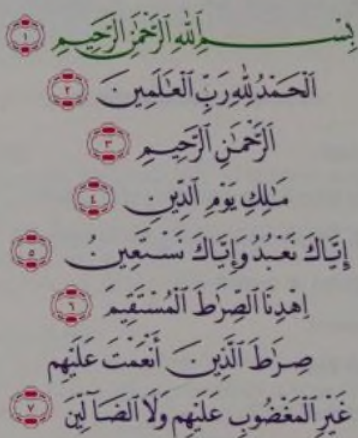 بِسْمِ ٱللَّهِ ٱلرَّحْمَٰنِ ٱلرَّحِيمِ ١
ٱلْحَمْدُ لِلَّهِ رَبِّ ٱلْعَٰلَمِينَ ٢
ٱلرَّحْمَٰنِ ٱلرَّحِيمِ ٣
مَٰلِكِ يَوْمِ ٱلدِّينِ ٤
إِيَّاكَ نَعْبُدُ وَإِيَّاكَ نَسْتَعِينُ ٥
ٱهْدِنَا ٱلصِّرَٰطَ ٱلْمُسْتَقِيمَ ٦
صِرَٰطَ ٱلَّذِينَ أَنْعَمْتَ عَلَيْهِمْ
غَيْرِ ٱلْمَغْضُوبِ عَلَيْهِمْ وَلَا ٱلضَّآلِّينَ ٧